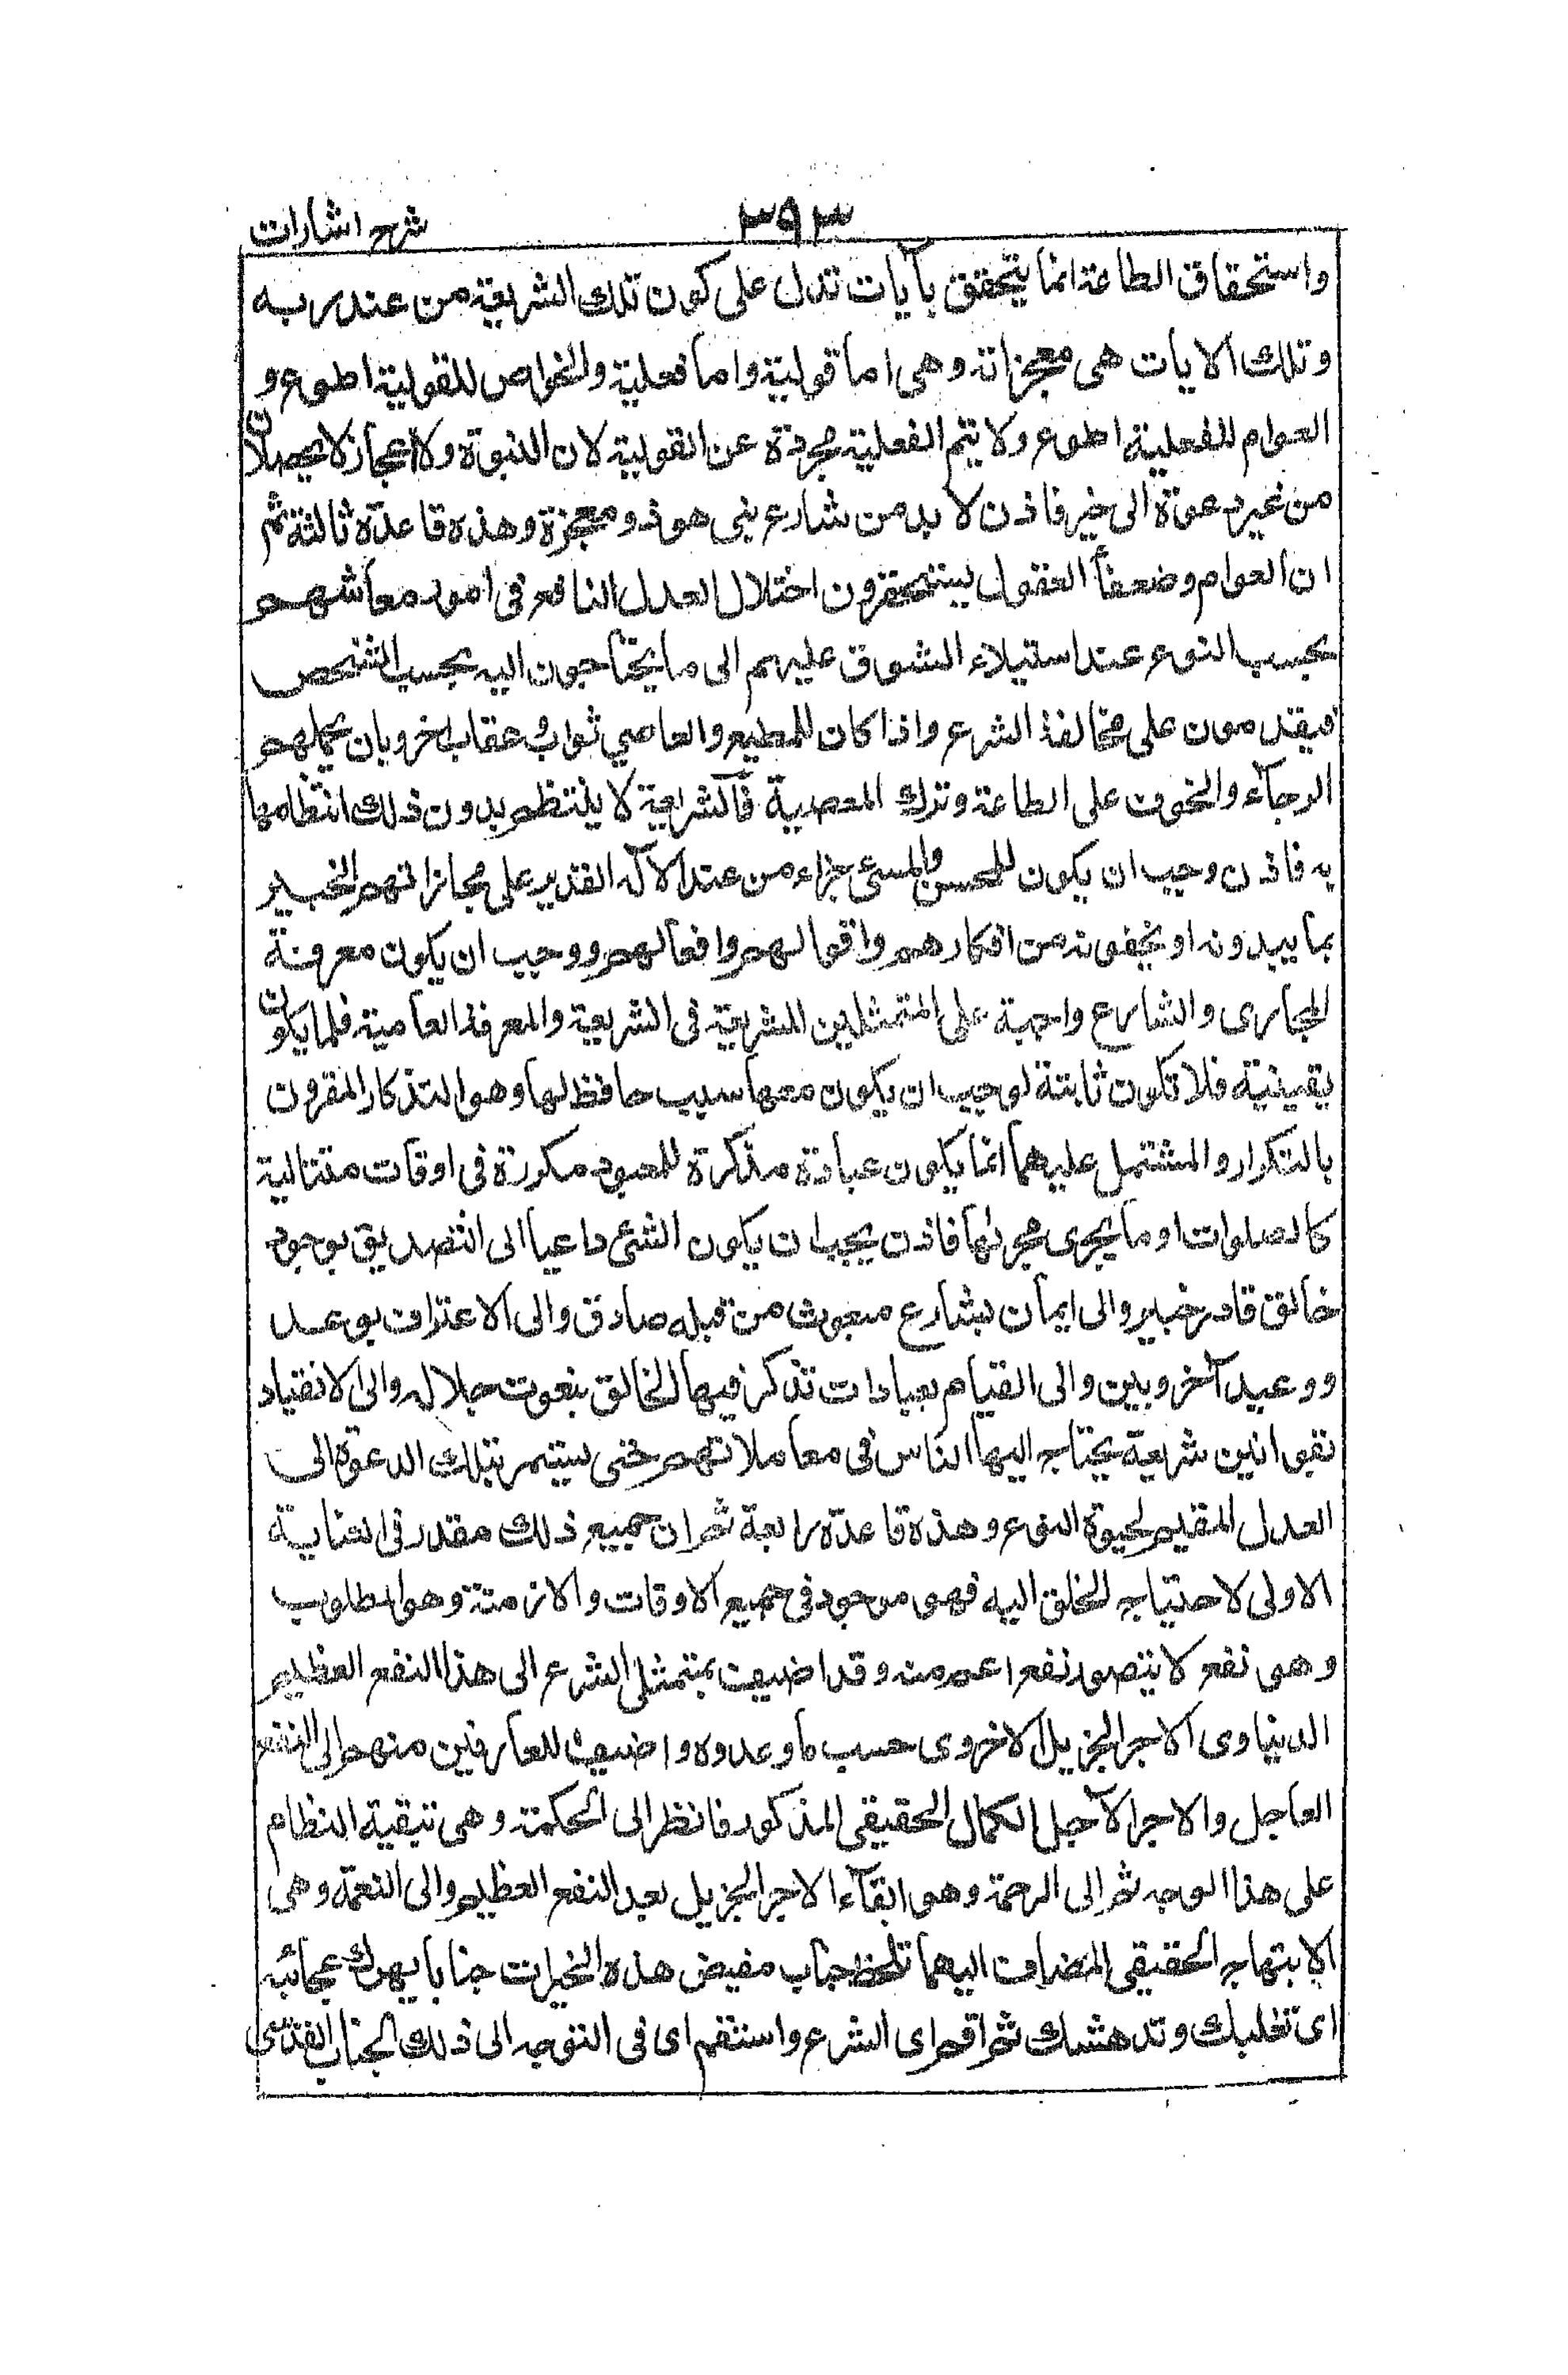 شرح اشارات
٣٩٣
واستحقاق الطاعة انما يتحقق بآيات تدل على كون تلك الشريعة من عند ربه
وتلك الايات هى معجزاته وهى اما قولية واما فعلية والخواص للقولية اطوع و
العوام للفعلية اطوع ولا يتم الفعلية مجردة عن القولية لان النبوة والاعجاز لا يحصلان
من غير دعوة الى خير فاذن لا بد من شارع نبى هو ذو معجزة وهذه قاعدة ثالثة ثم
ان العوام وضعفاء العقول يستحقرون اختلال العدل النافع فى امور معاشهم
بحسب النوع عند استيلاء الشوق عليهم الى ما يحتاجون اليه بحسب الشخص
فيقدمون على مخالفة الشرع واذا كان للمطيع والعاصي ثواب وعقاب اخرويان يحملهم
الرجاء والخوف على الطاعة وترك المعصية فالشريعة لا ينتظم بدون ذلك انتظامها
به فاذن وجب ان يكون للمحسن والمسئ جزاء من عند الاله القدير على مجازاتهم الخبير
بما يبدونه او يخفونه من افكارهم واقوالهم وافعالهم ووجب ان يكون معرفة
المجازى والشارع واجبة على المتمثلين للشريعة فى الشريعة والمعرفة العامية قلما يكون
يقينية فلا تكون ثابتة لوجب ان يكون معها سبب حافظ لها وهو التذكار المقرون
بالتكرار والمشتمل عليهما انما يكون عبادة مذكرة للمعبود مكررة فى اوقات متتالية
كالصلوات او ما يجرى مجرىها فاذن يجب ان يكون الشئ داعيا الى التصديق بوجود
خالق قادر خبير والى ايمان بشارع مبعوث من قبله صادق والى الاعتراف بوعد
ووعيد آخرويين والى القيام بعبادات تذكر فيها الخالق بنعوت جلاله والى الانقياد
بقوانين شريعة يحتاج اليها الناس فى معاملاتهم حتى يستمر بتلك الدعوة الى
العدل المقيم لحيوة النوع وهذه قاعدة رابعة ثم ان جميع ذلك مقدر فى العناية
الاولى لاحتياج الخلق اليه فهو موجود فى جميع الاوقات والازمنة وهو المطلوب
وهى نفع لا يتصور نفع اعم منه وقد اضيف بمتمثلى الشرع الى هذا النفع العظيم
الدنياوى الاجر الجزيل الاخروى حسب ما وعدوه واضيف للعارفين منهم الى النفع
العاجل والاجر الآجل الكمال الحقيقى المذكور فانظر الى الحكمة وهى تبقية النظام
على هذا الوجه ثم الى الرحمة وهو ابقاء الاجر الجزيل بعد النفع العظيم والى النعمة وهى
الابتهاج الحقيقى المضاف اليهما تلحظ جناب مفيض هذه الخيرات جنابا يبهرك عجائبه
اى تغلبك وتدهشك ثم اقم اى الشرع واستقم اى فى التوجه الى ذلك الجناب القدسى